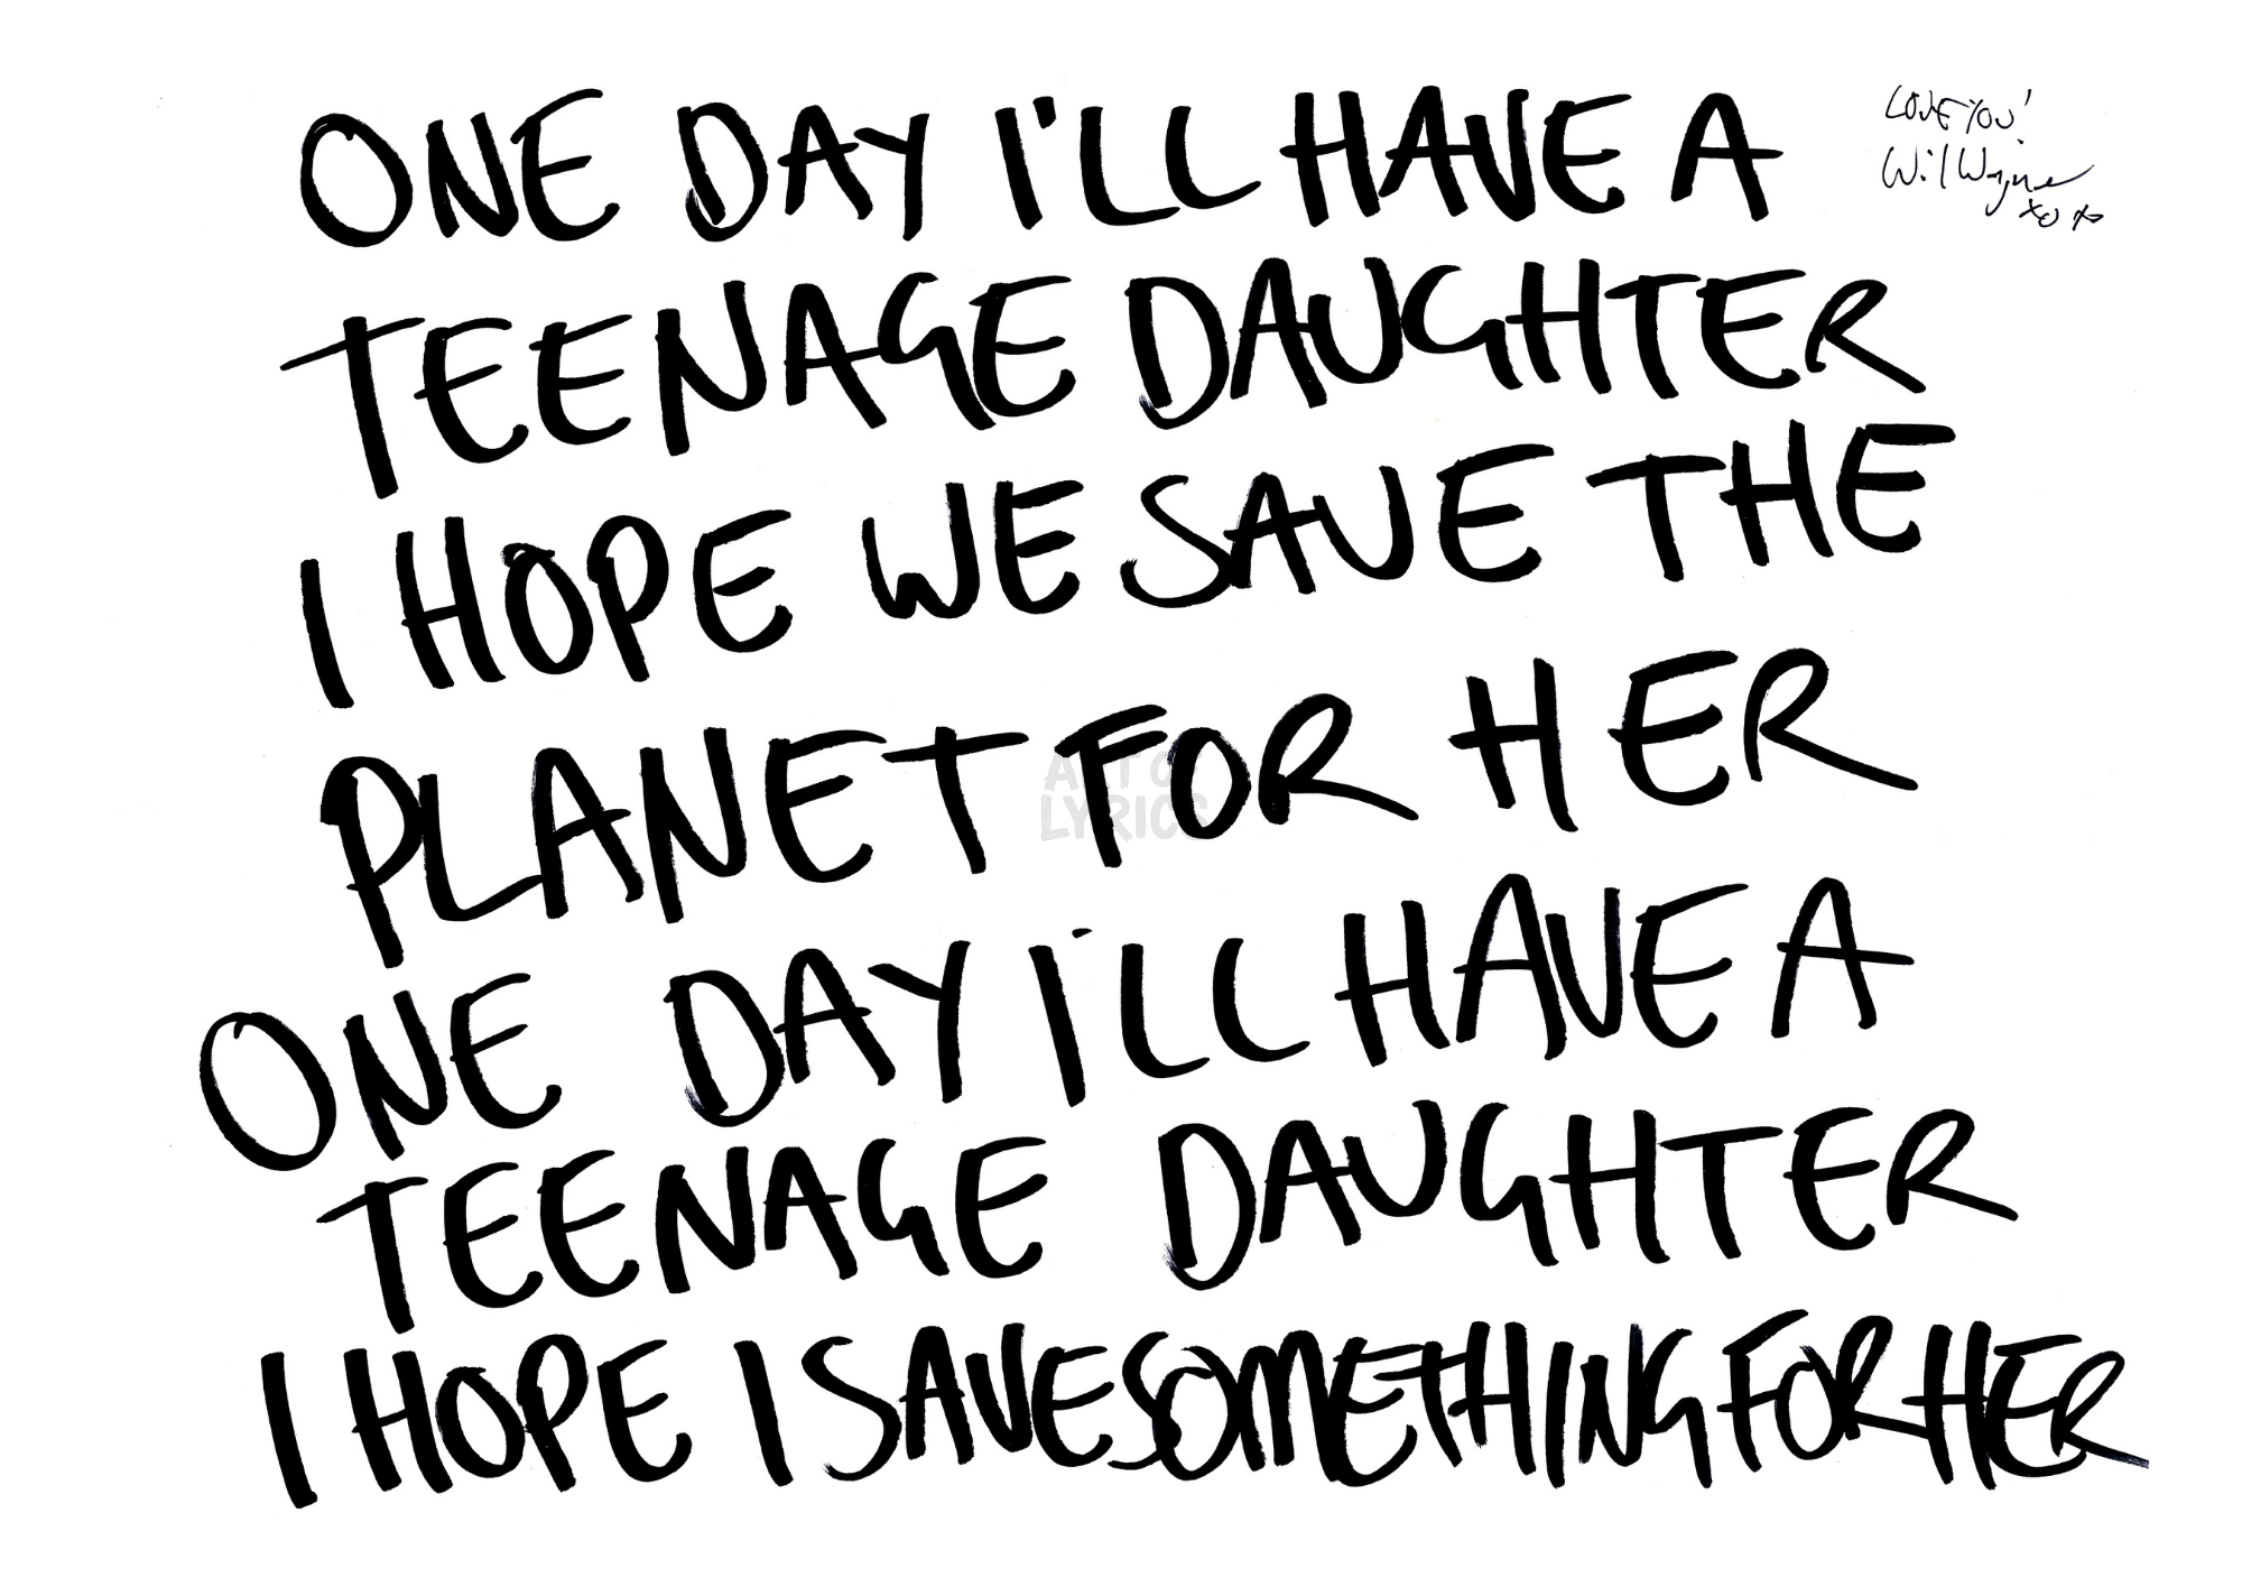 ONE DAY I'LL HAVE A
LOVE YOU!
Wil Wagner
xo xo
TEENAGE DAUGHTER
I HOPE WE SAVE THE
PLANET FOR HER
ONE DAY I'LL HAVE A
TEENAGE DAUGHTER
I HOPE I SAVE SOMETHING FOR HER